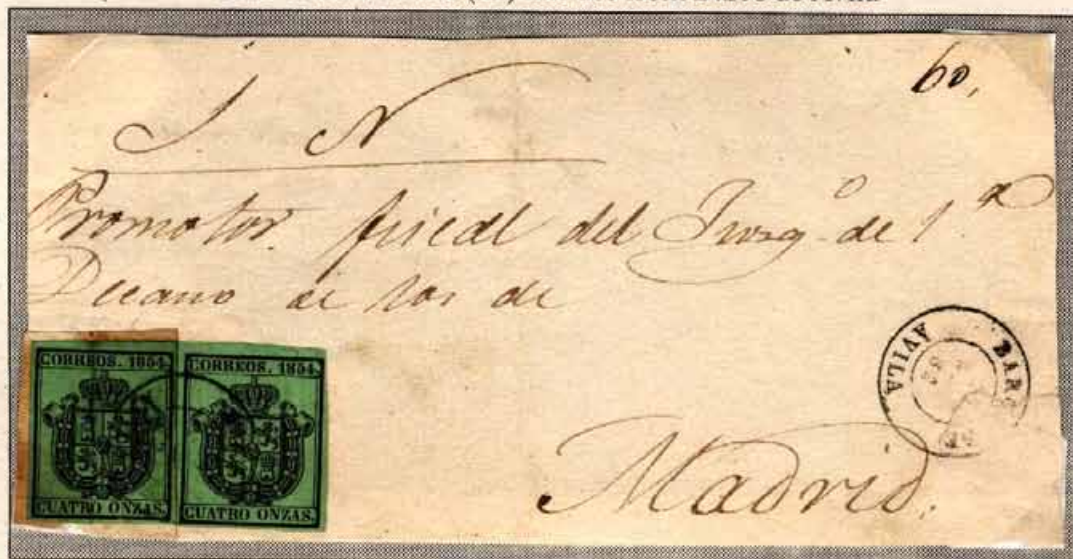 60,
S N
Promotor fiscal del Juzgº de 1ª
Decano de los de
CORREOS. 1854. CORREOS. 1854.
CUATRO ONZAS. CUATRO ONZAS.
AVILA
Madrid.